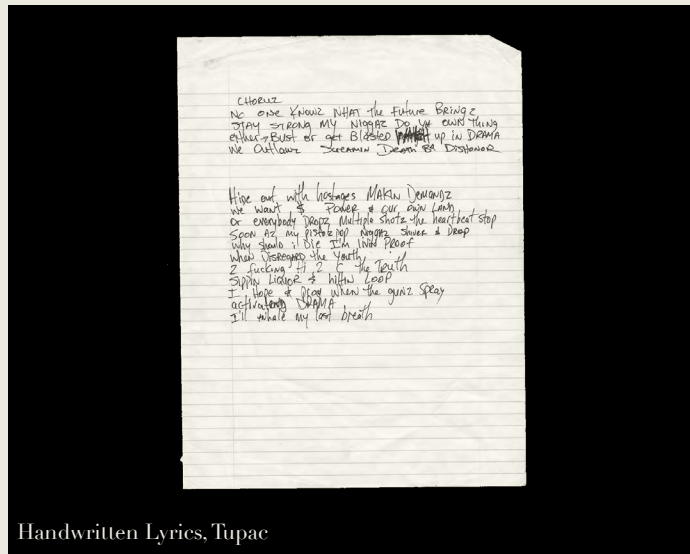 CHORUZ
NO ONE KNOWZ WHAT the Future Bringz
STAY STRONG MY NIGGAZ DO Ya OWN THING
Either Bust or get Blasted up in DRAMA
We Outlawz Screamin Death B4 DISHONOR
Hide out with hostages MAKIN DEMANDZ
We want $ Power & our own Land
Or everybody Dropz Multiple shotz the heartbeat stop
Soon Az my pistolz pop Niggaz Shiver & Drop
Why should i Die I'm livin Proof
When Disregard the Youth
2 fucking Hi 2 C the Truth
Sippin Liquor & hittin LOOP
I Hope & pray when the gunz Spray
activating DRAMA
I'll inhale my last breath
Handwritten Lyrics, Tupac